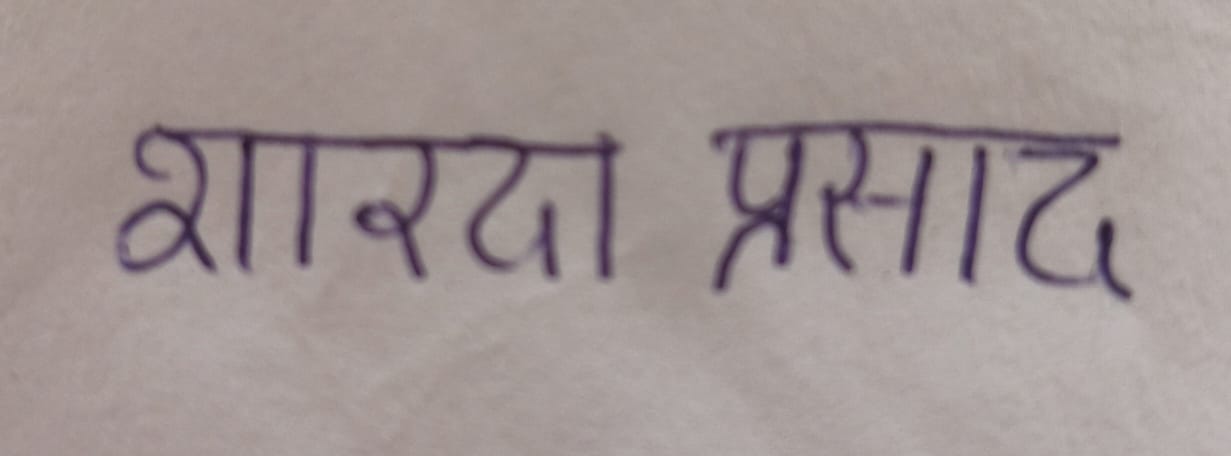 शारदा प्रसाद